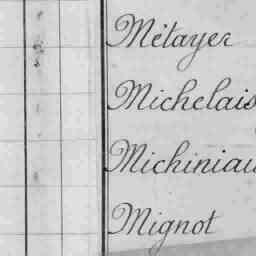 Métayer
Michelais
Michiniau
Mignot